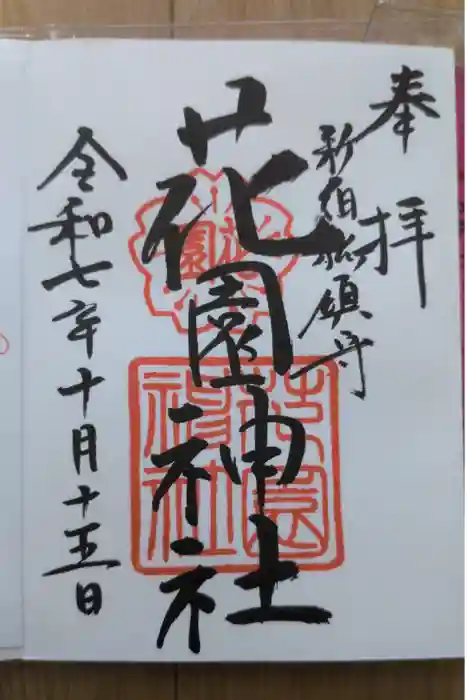 奉拝
新宿総鎮守
花園神社
令和七年十月十五日
花園
花園神社